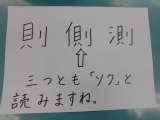 則 側 測
⇧
三つとも「ソク」と
読みますね。